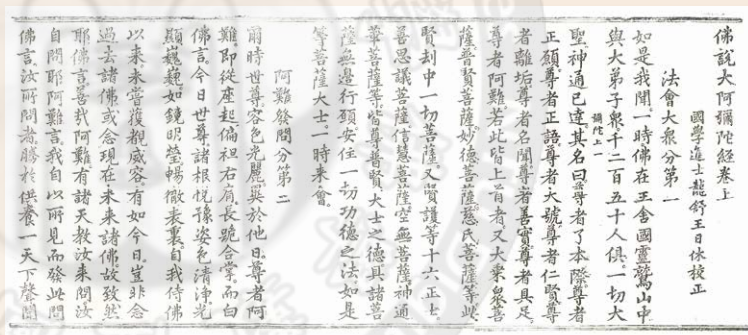 佛說大阿彌陀經卷上
國學進士龍舒王日休校正
法會大衆分第一
如是我聞。一時佛在王舍國靈鷲山中
彌陀上一
與大弟子衆。千二百五十人俱。一切大
聖。神通已達。其名曰。尊者了本際。尊者
正願。尊者正語。尊者大號。尊者仁賢。尊
者離垢。尊者名聞。尊者善實。尊者具足
尊者阿難。若此皆上首者。又大乘衆菩
薩。普賢菩薩。妙德菩薩。慈氏菩薩等。此
賢刦中一切菩薩。又賢護等十六正士。
善思議菩薩。信慧菩薩。空無菩薩。神通
華菩薩等。皆尊普賢大士之德。具諸菩
薩無邊行願。安住一切功德之法。如是
等菩薩大士。一時來會。
阿難發問分第二
爾時世尊。容色光麗。異於他日。尊者阿
難。即從座起。偏袒右肩。長跪合掌。而白
佛言。今日世尊諸根悅豫。姿色清淨。光
顯巍巍。如鏡明瑩。暢徹表裏。自我侍佛
以來。未嘗復覩威容。有如今日。豈非念
過去諸佛。或念現在未來諸佛。故致然
耶。佛言。善哉阿難。有諸天教汝來問。汝
自問耶。阿難言。我自以所見而發此問
佛言。汝所問者。勝於供養一天下聲聞